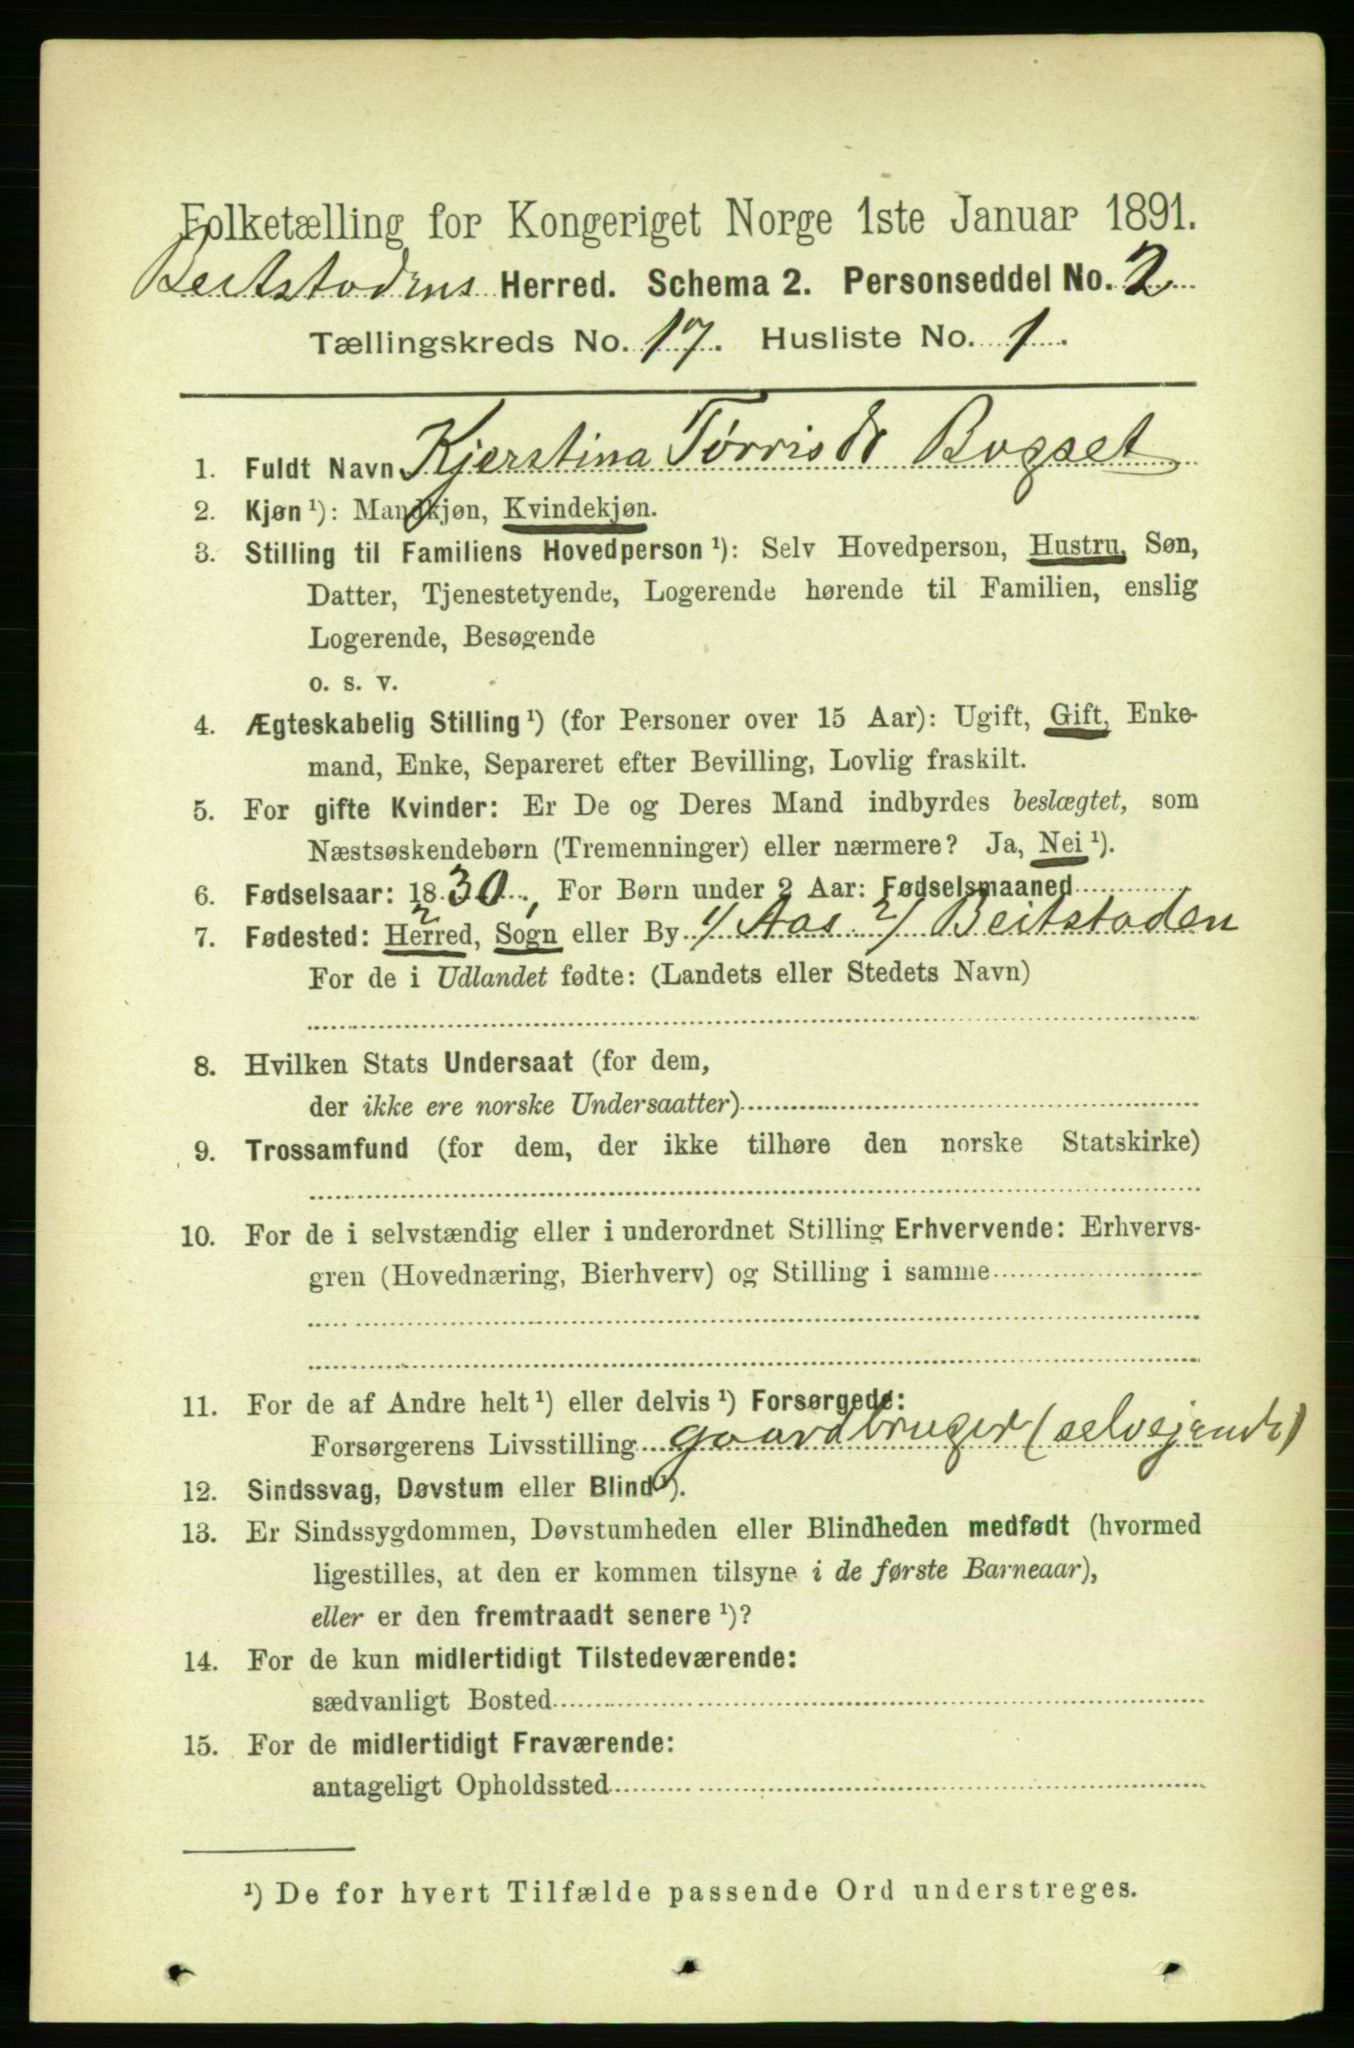 Folketælling for Kongeriget Norge 1ste Januar 1891.
Beitstadens Herred. Schema 2. Personseddel No. 2
Tællingskreds No. 17. Husliste No. 1.
1. Fuldt Navn Kjerstina Tørrisdr Bogset
2. Kjøn ¹): Mandkjøn, Kvindekjøn.
3. Stilling til Familiens Hovedperson ¹): Selv Hovedperson, Hustru, Søn,
Datter, Tjenestetyende, Logerende hørende til Familien, enslig
Logerende, Besøgende
o. s. v.
4. Ægteskabelig Stilling ¹) (for Personer over 15 Aar): Ugift, Gift, Enke-
mand, Enke, Separeret efter Bevilling, Lovlig fraskilt.
5. For gifte Kvinder: Er De og Deres Mand indbyrdes beslægtet, som
Næstsøskendebørn (Tremenninger) eller nærmere? Ja, Nei ¹).
6. Fødselsaar: 1830, For Børn under 2 Aar: Fødselsmaaned
7. Fødested: Herred, Sogn eller By 1/ Aas 2/ Beitstaden
For de i Udlandet fødte: (Landets eller Stedets Navn)
8. Hvilken Stats Undersaat (for dem,
der ikke ere norske Undersaatter)
9. Trossamfund (for dem, der ikke tilhøre den norske Statskirke)
10. For de i selvstændig eller i underordnet Stilling Erhvervende: Erhvervs-
gren (Hovednæring, Bierhverv) og Stilling i samme
11. For de af Andre helt ¹) eller delvis ¹) Forsørgede:
Forsørgerens Livsstilling gaardbruger (selvejende)
12. Sindssvag, Døvstum eller Blind ¹).
13. Er Sindssygdommen, Døvstumheden eller Blindheden medfødt (hvormed
ligestilles, at den er kommen tilsyne i de første Barneaar),
eller er den fremtraadt senere ¹)?
14. For de kun midlertidigt Tilstedeværende:
sædvanligt Bosted
15. For de midlertidigt Fraværende:
antageligt Opholdssted
¹) De for hvert Tilfælde passende Ord understreges.